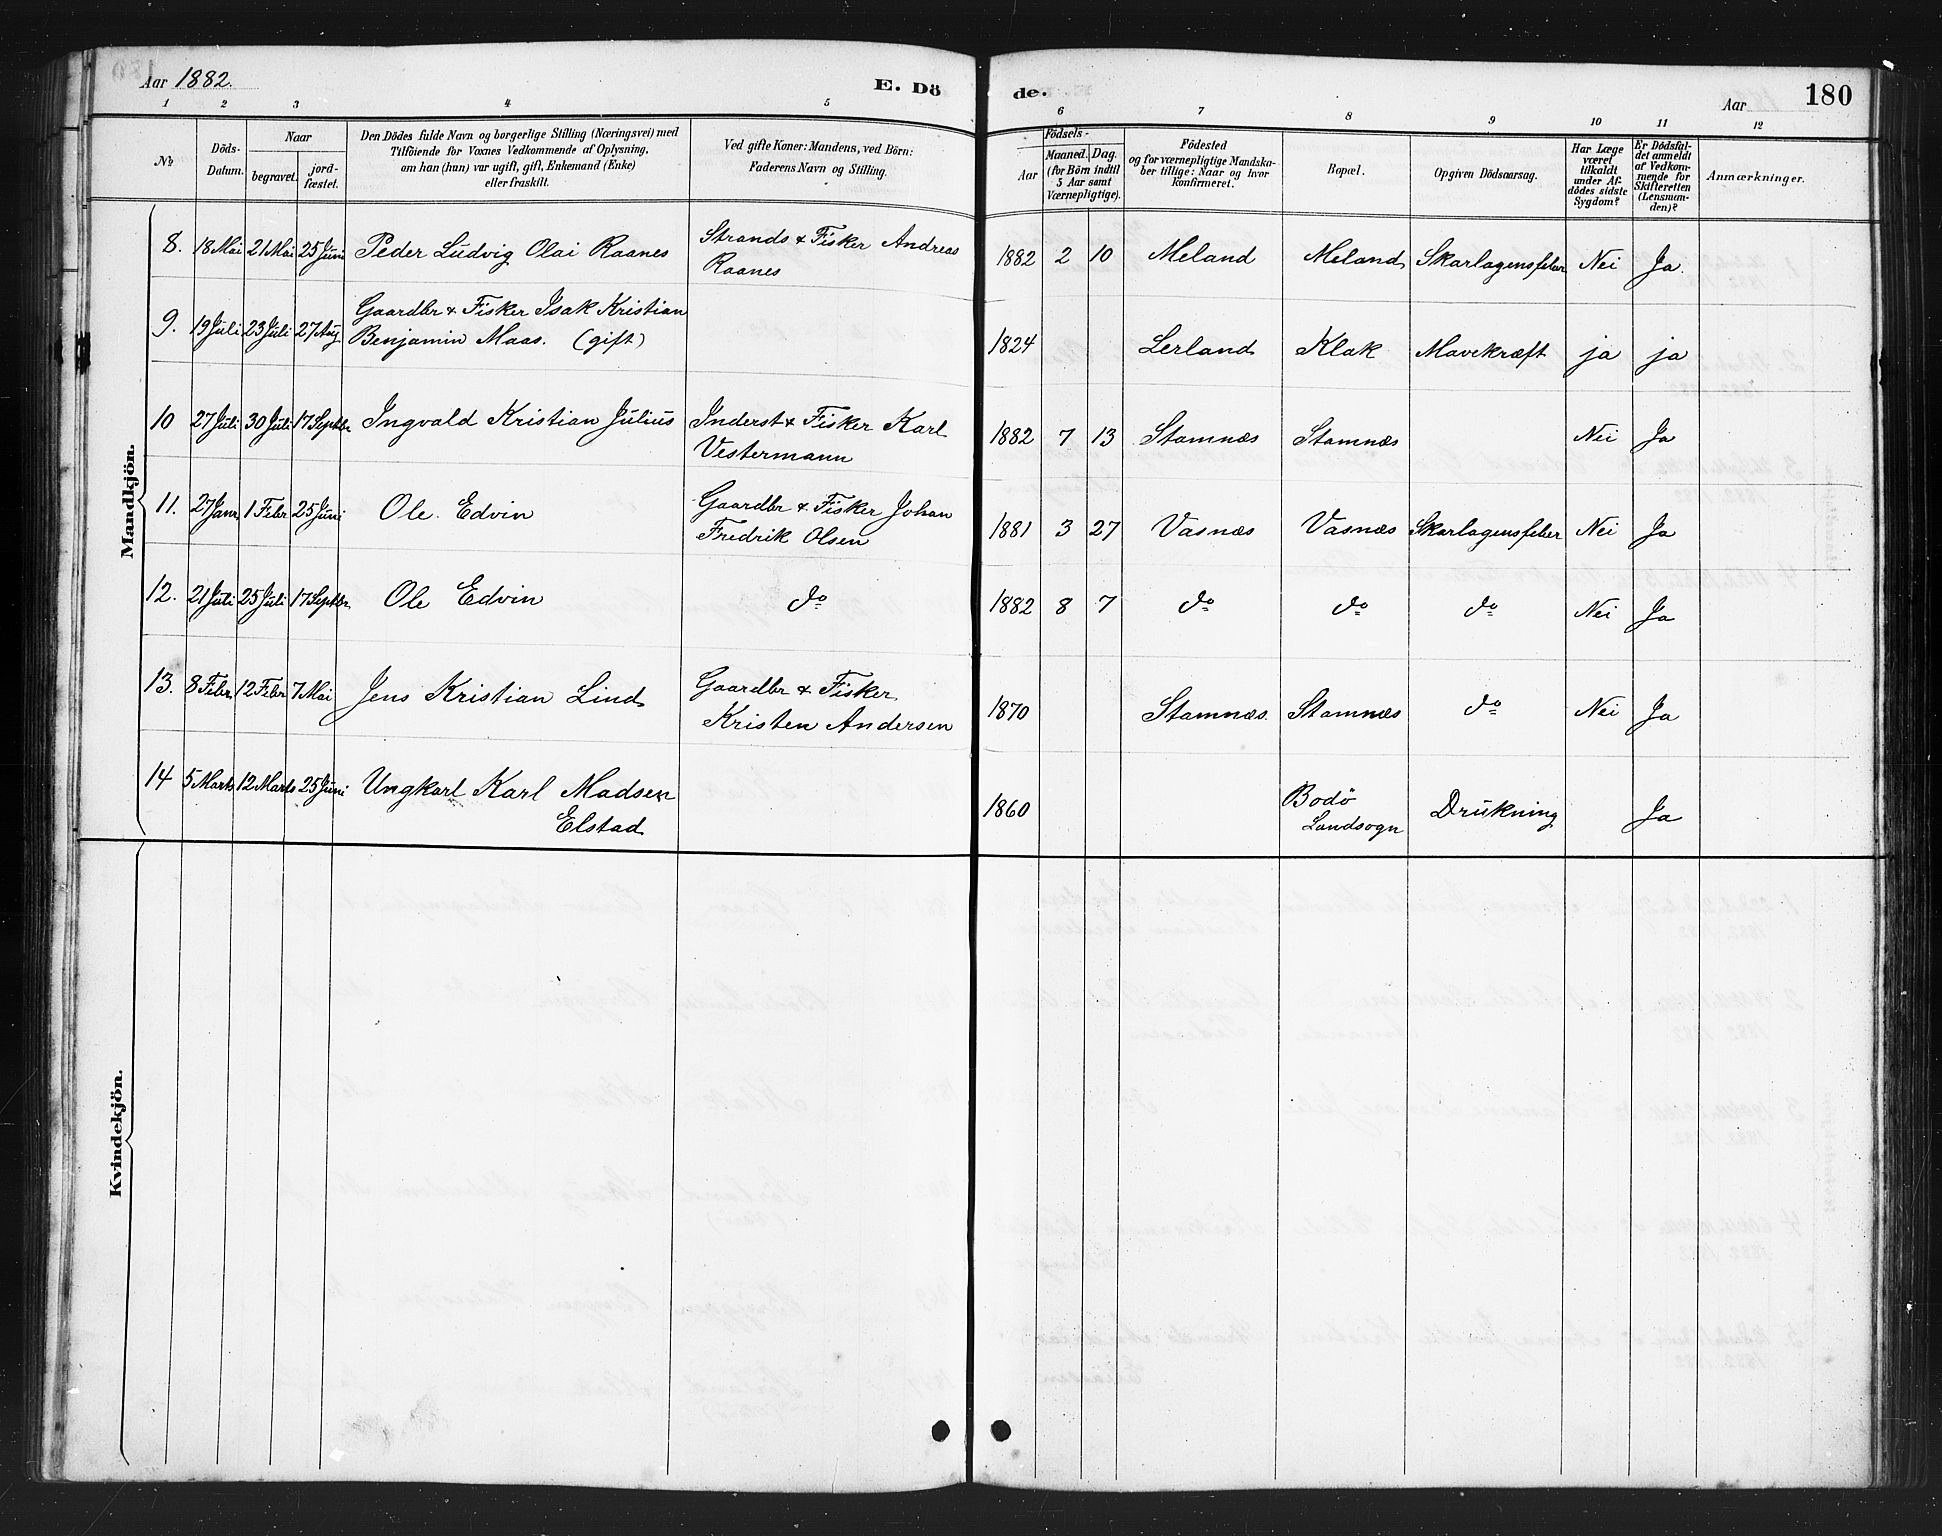 Aar 1882.
E. Dö
de.
Aar
180
1 2 3 4 5 6 7 8 9 10 11 12
№
Döds-
Datum.
Naar
begravet.
jord-
fæstet.
Den Dödes fulde Navn og borgerlige Stilling (Næringsvei) med
Tilföiende for Voxnes Vedkommende af Oplysning,
om han (hun) var ugift, gift, Enkemand (Enke)
eller fraskilt.
Ved gifte Koner: Mandens, ved Börn:
Faderens Navn og Stilling.
Födsels-
Aar
Maaned. Dag.
(for Börn indtil
5 Aar samt
Værnepligtige).
Födested
og for værnepligtige Mandska-
ber tillige: Naar og hvor
Konfirmeret.
Bopæl.
Opgiven Dödsaarsag.
Har Læge
været
tilkaldt
under Af-
dödes sidste
Sygdom?
Er Dödsfal-
det anmeldt
af Vedkom-
mende for
Skifteretten
(Lensman-
den)?
Anmærkninger.
Mandkjön.
8. 18 Mai 21 Mai 25 Juni Peder Ludvig Olai Raanes Strands & Fisker Andreas
Raanes
1882 2 10 Meland Meland Skarlagensfeber Nei Ja.
9. 19 Juli 23 Juli 27 Aug. Gaardbr & Fisker Isak Kristian
Benjamin Maas. (gift)
1824 Lerland Klak Mavekræft ja ja
10 27 Juli 30 Juli 17 Septbr Ingvald Kristian Julius Inderst & Fisker Karl
Vestermann
1882 7 13 Stamnæs Stamnæs Nei Ja
11. 27 Janr 1 Febr 25 Juni Ole Edvin Gaardbr & Fisker Johan
Fredrik Olsen
1881 3 27 Vasnæs Vasnæs Skarlagensfeber Nei Ja
12. 21 Juli 25 Juli 17 Septbr. Ole Edvin do
1882 8 7 do do do Nei Ja
13. 8 Febr. 12 Febr 7 Mai Jens Kristian Lind Gaardbr & Fisker
Kristen Andersen
1870 Stamnæs. Stamnæs do Nei Ja
14 5 Marts 12 Marts 25 Juni Ungkarl Karl Madsen
Elstad
1860 Bodö
Landsogn Drukning Ja
Kvindekjön.